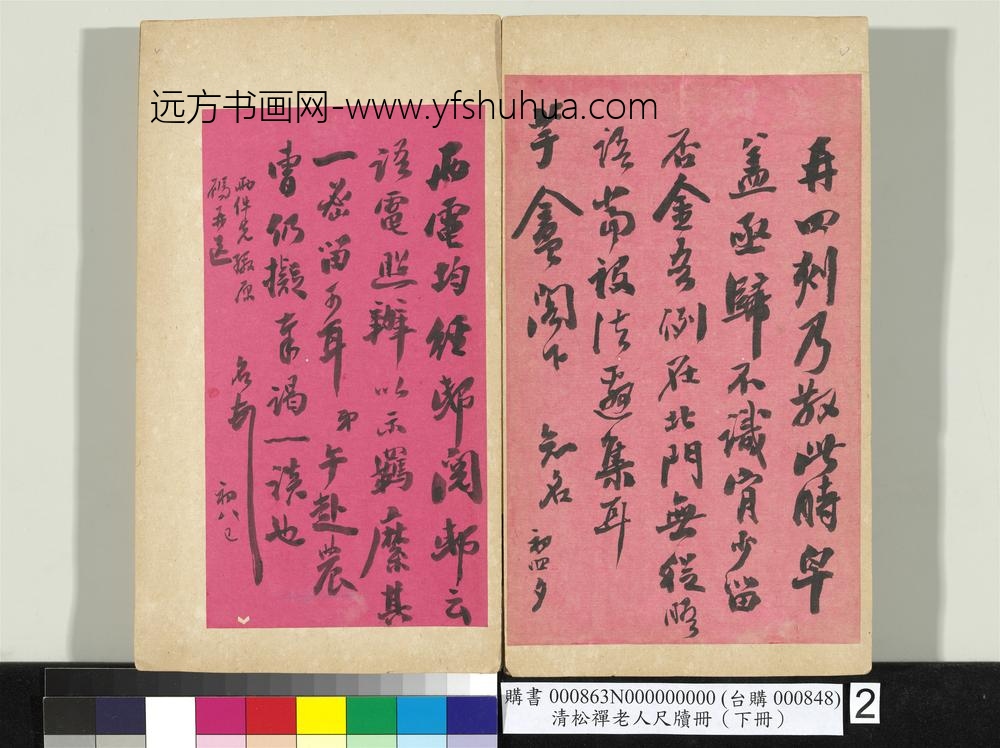 远方书画网-www.yfshuhua.com
再四刻乃散此時早
盖亟歸不識肯少留
否金吾例在北門無從晤
語當設法邂集耳
芋盦閣下 知名 初四夕
兩電均經邸閱邸云
語電照辦以示羈縻其
一密留可耳 弟午赴農
曹仍擬奉謁一談也
名另 初八巳
兩件先繳原
碼再送
購書 000863N000000000 (台購 000848)
清松禪老人尺牘冊（下冊）
2